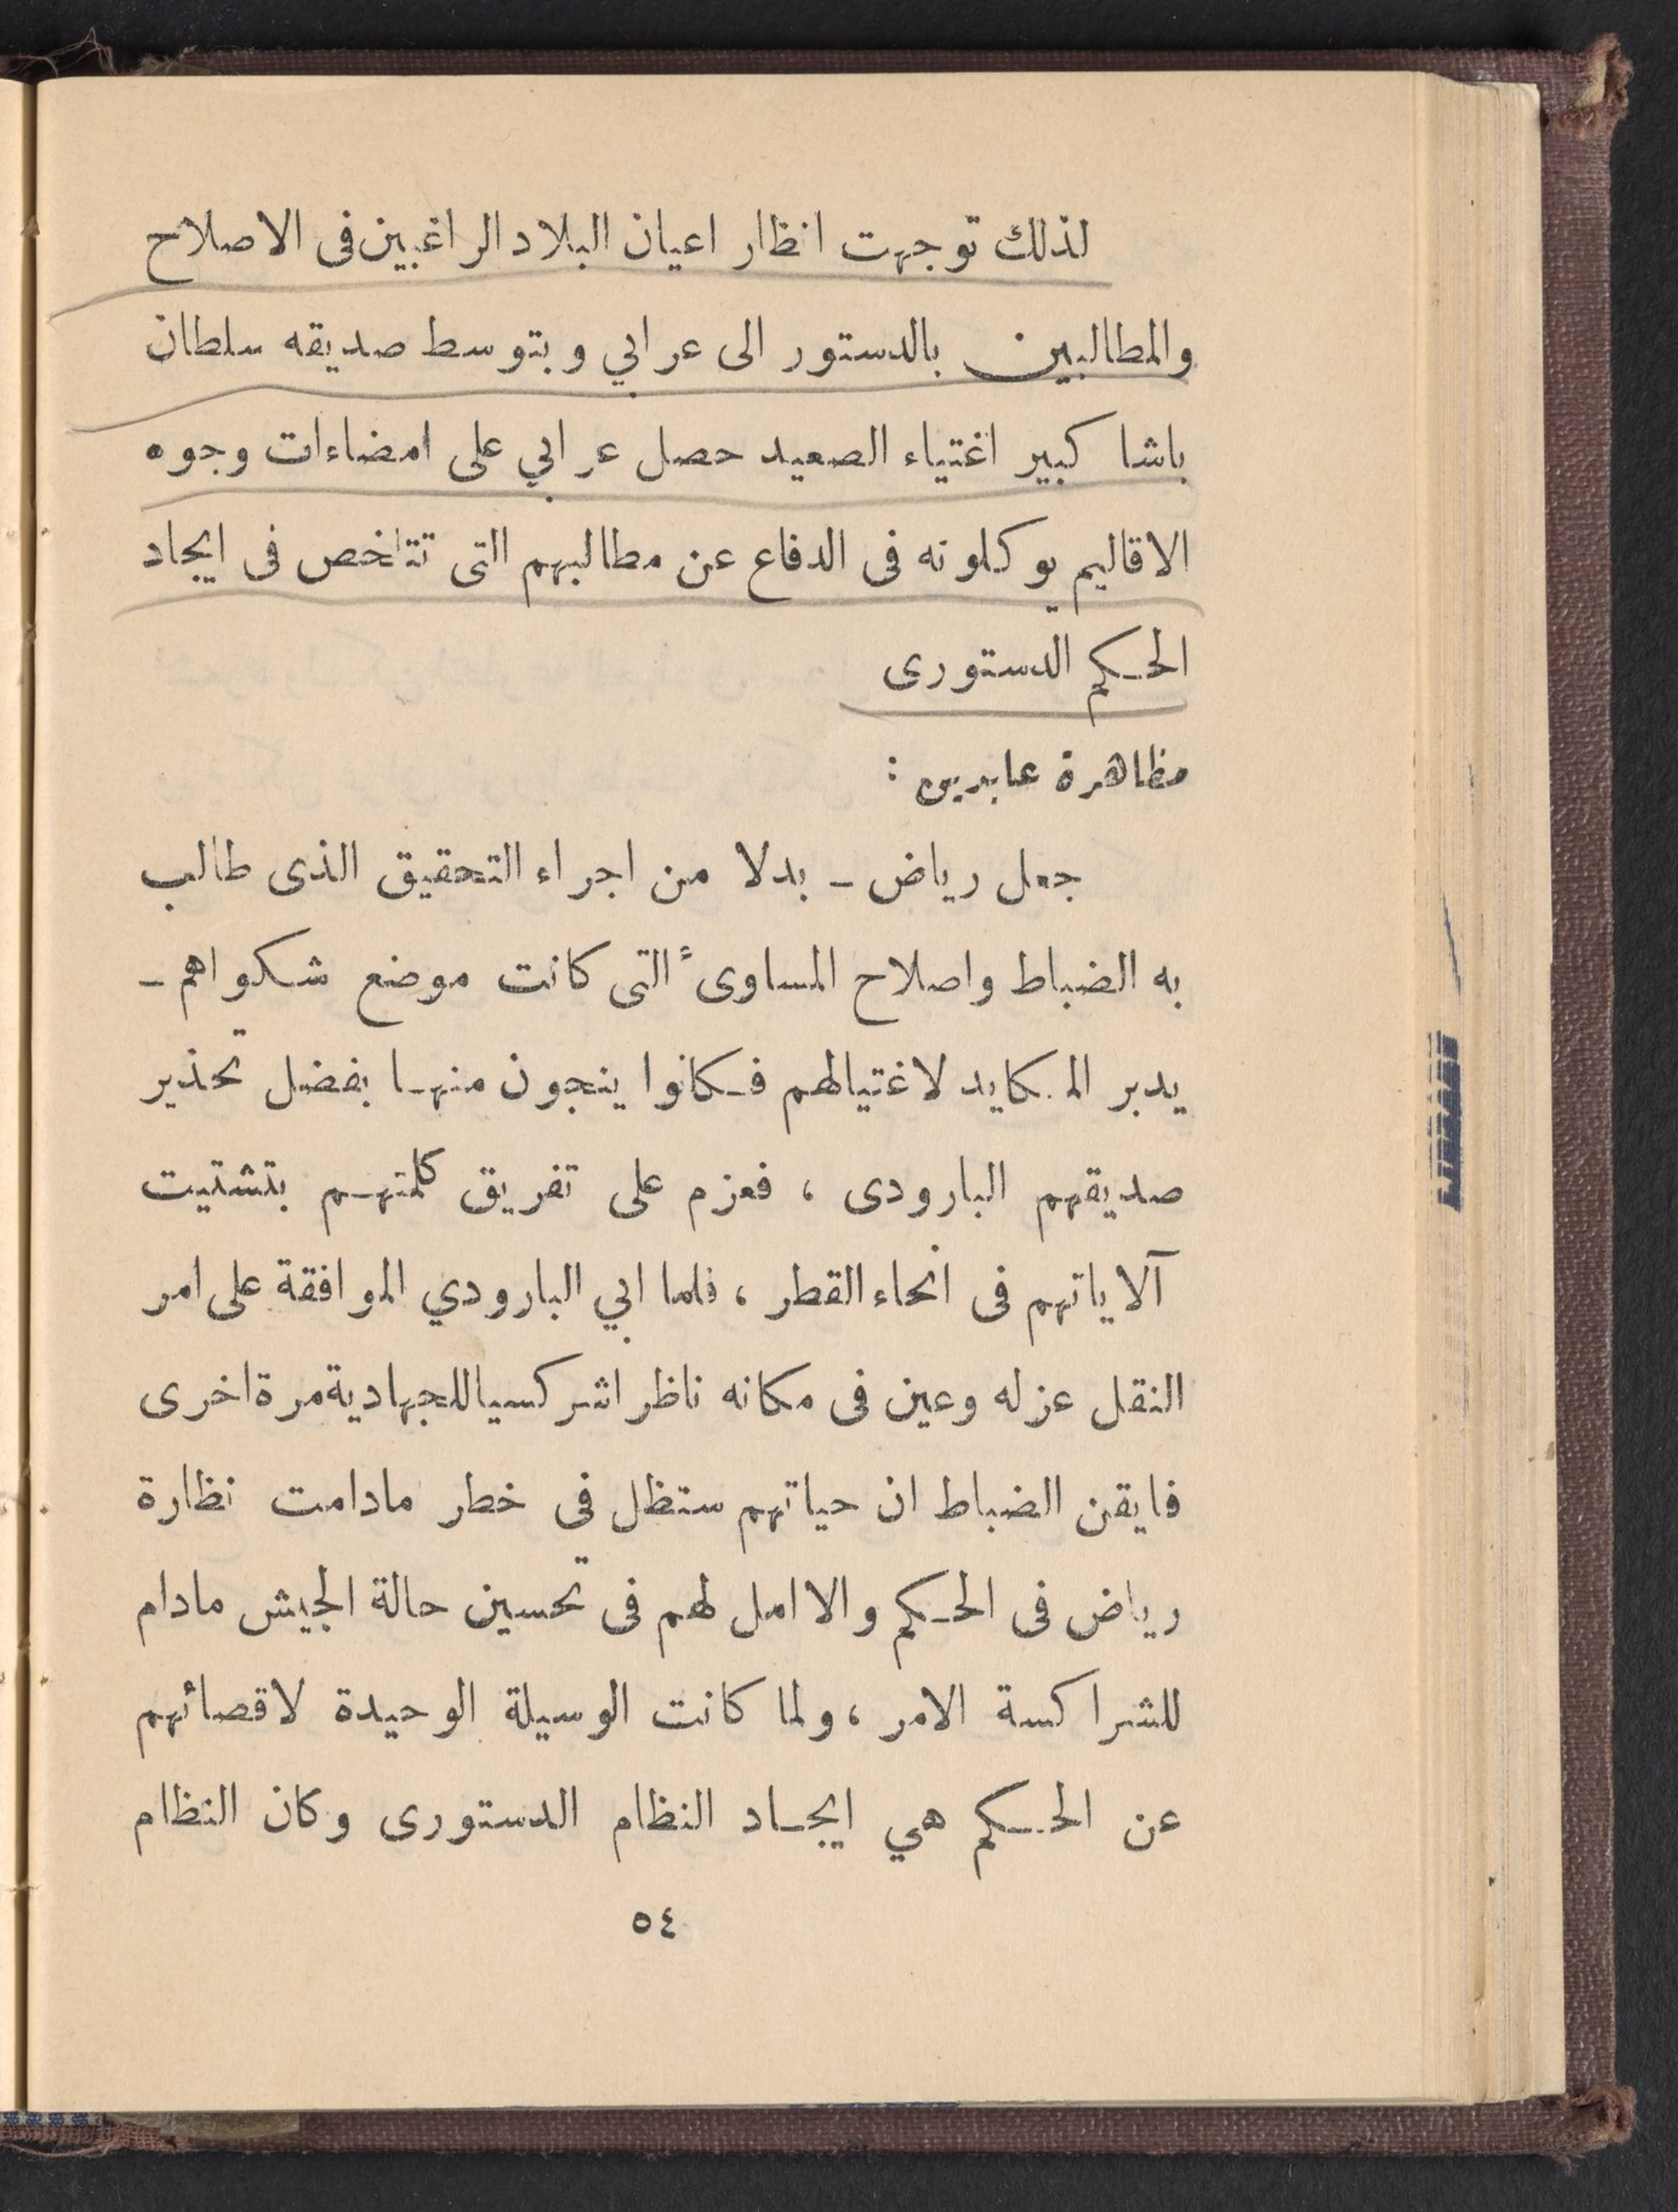 لذلك توجهت انظار اعيان البلاد الراغبين فى الاصلاح
والمطالبين بالدستور الى عرابي وبتوسط صديقه سلطان
باشا كبير اغتياء الصعيد حصل عرابي على امضاءات وجوه
الاقاليم يوكلونه فى الدفاع عن مطالبهم التى تتلخص فى ايجاد
الحكم الدستورى
مظاهرة عابدين :
جعل رياض - بدلا من اجراء التحقيق الذى طالب
به الضباط واصلاح المساوىء التى كانت موضع شكواهم -
يدبر المكايد لاغتيالهم فكانوا ينجون منها بفضل تحذير
صديقهم البارودى ، فعزم على تفريق كلمتهم بتشتيت
آلاياتهم فى انحاء القطر ، فلما ابي البارودي الموافقة على امر
النقل عزله وعين فى مكانه ناظرا شركسيا للجهادية مرة اخرى
فايقن الضباط ان حياتهم ستظل فى خطر مادامت نظارة
رياض فى الحكم والا امل لهم فى تحسين حالة الجيش مادام
للشراكسة الامر ، ولما كانت الوسيلة الوحيدة لاقصائهم
عن الحكم هي ايجاد النظام الدستورى وكان النظام
٥٤